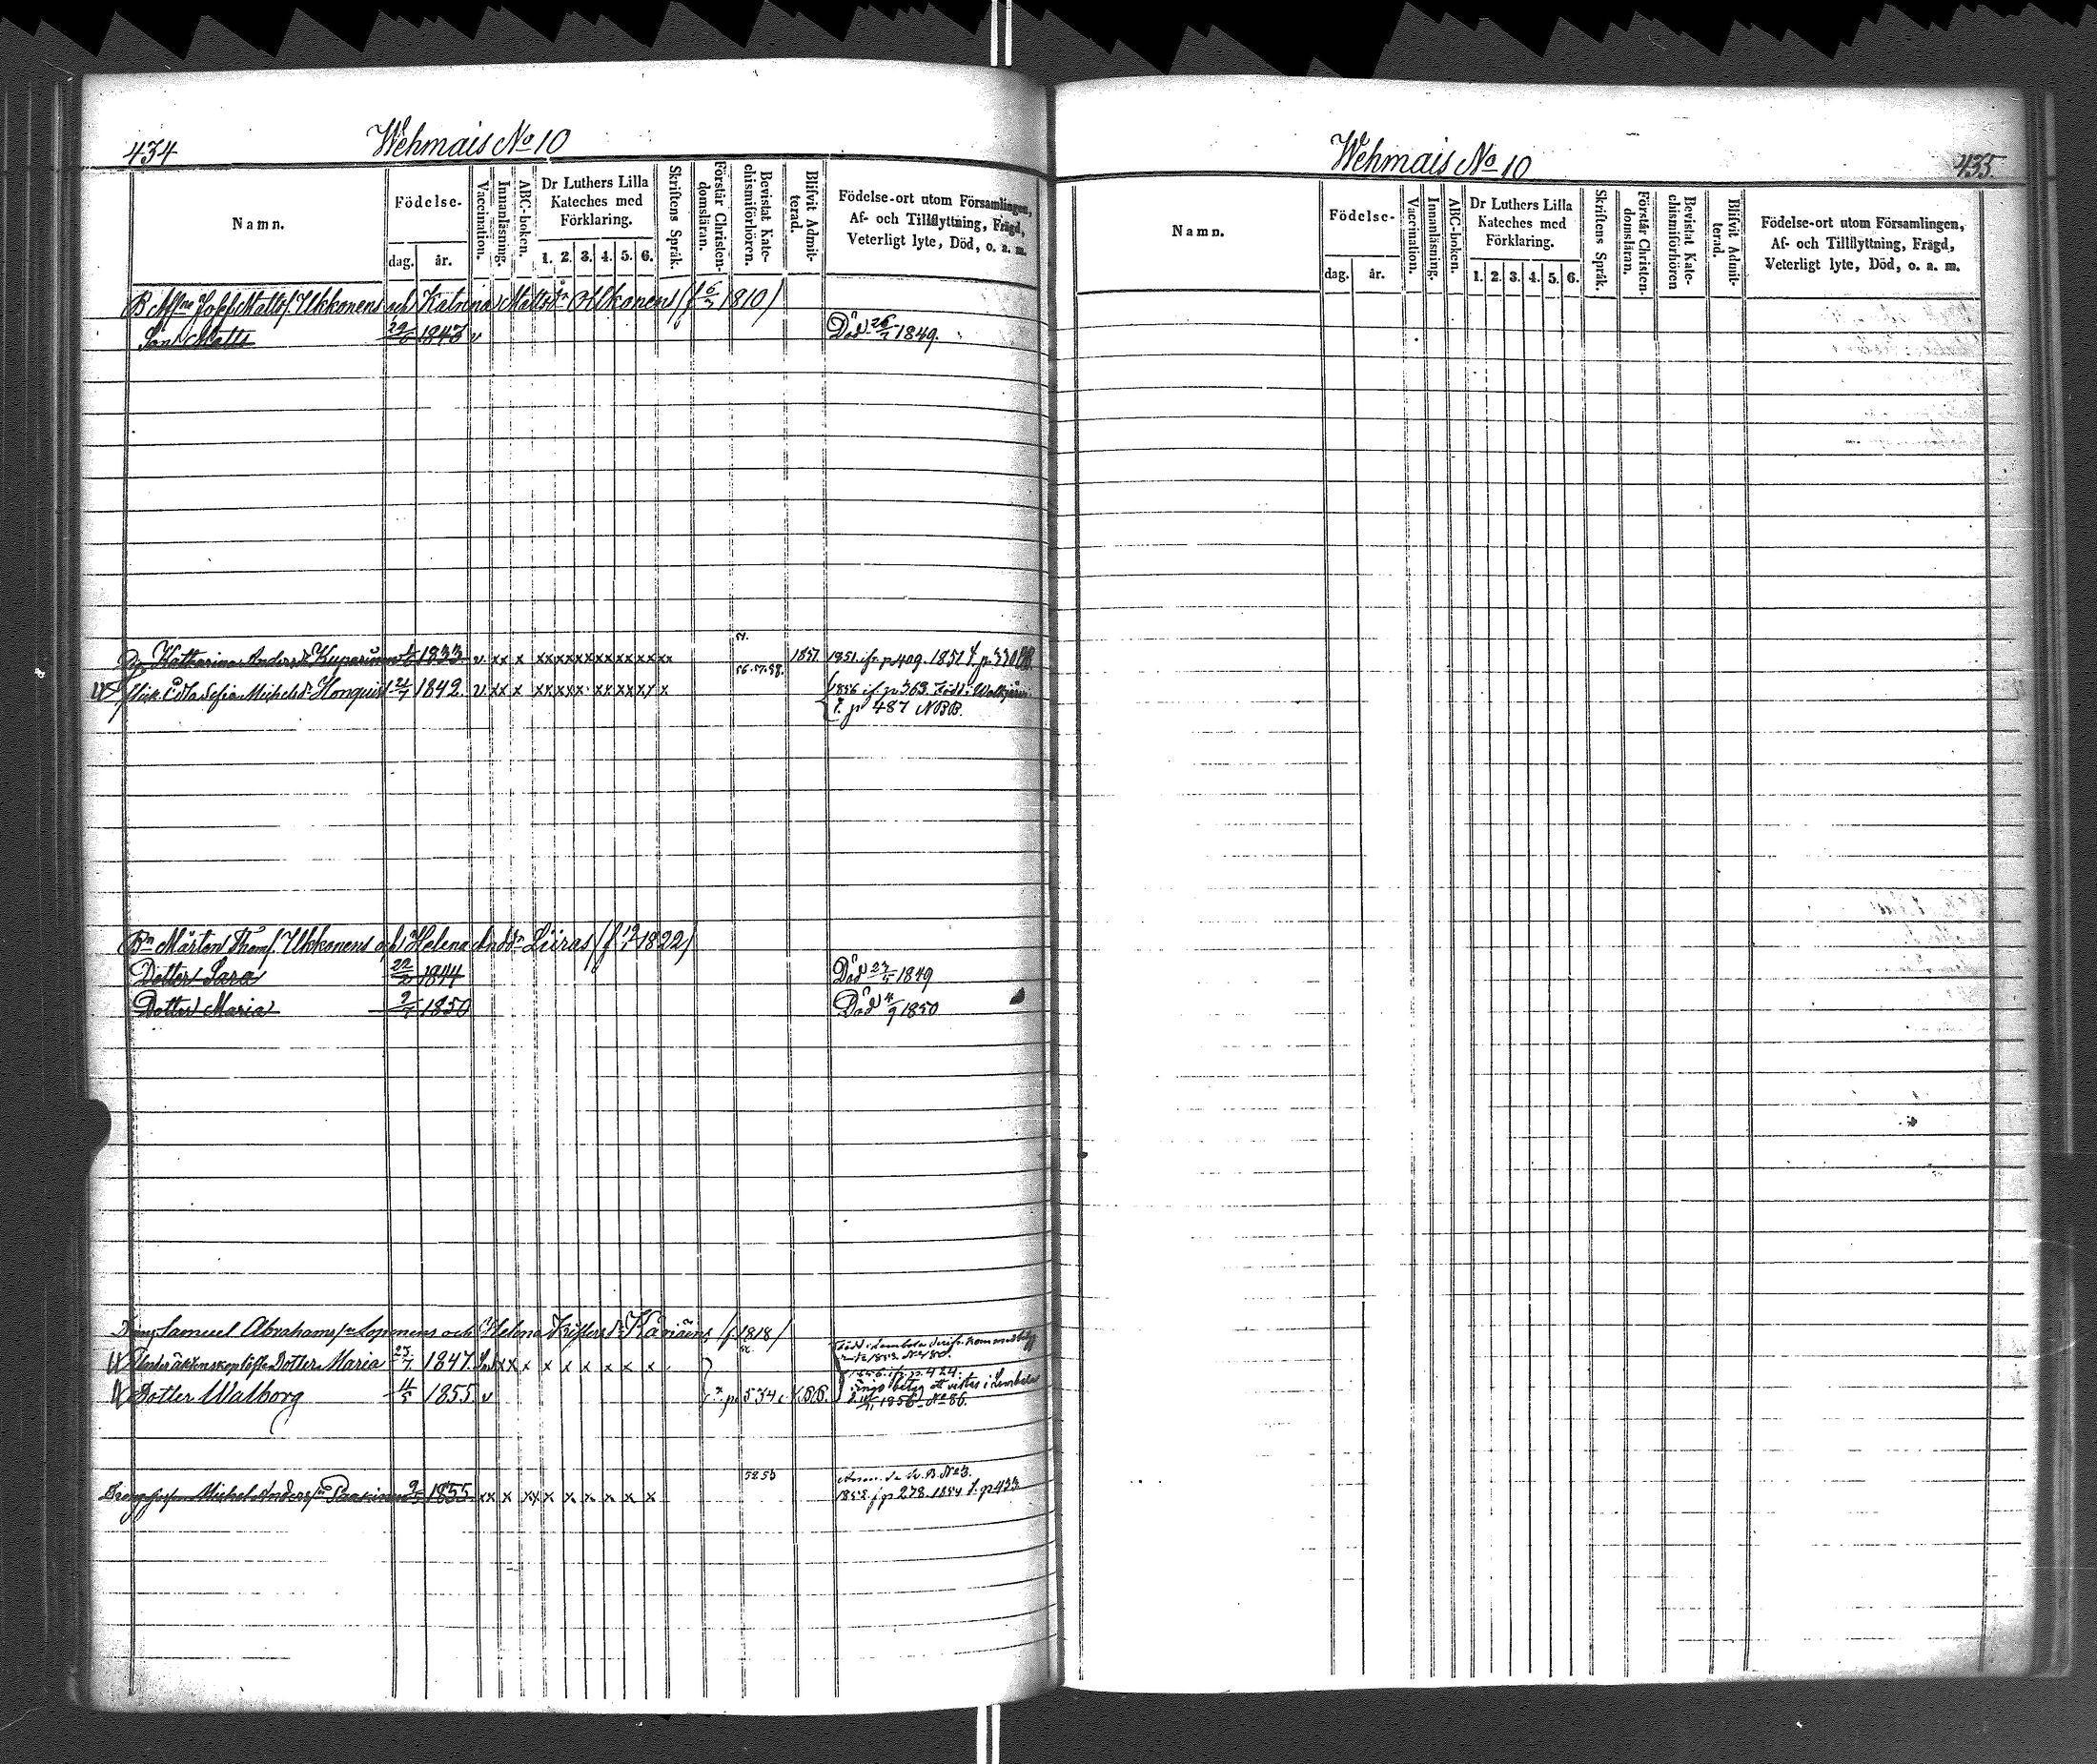 434
Wehmais No 10
Namn.
Födelse-
dag.
år.
Vaccination.
Innanläsning.
ABC-boken.
Dr Luthers Lilla
Kateches med
Förklaring.
1. 2. 3. 4. 5. 6.
Skriftens Språk.
Förstår Christen-
domsläran.
Bevistat Kate-
chismiförhören.
Blifvit Admit-
terad.
Födelse-ort utom Församlingen,
Af- och Tillflyttning, Frägd,
Veterligt lyte, Död, o. a. m.
Josef Matts. Ukkonens och Katrina Mattsdr Ollikanens 1810
Son Matts 1843 v Död 1849.
Katharina Andersdr Kuparinen 1833 v xx x xxxxxxxxxxxxx 1851 1851 ifr. p 409. 1851
56.57.58.
Sofia Michelsdr Honquist 21/7 1842. v xx x xx xxx xx xxx x 1856 if. p 363. Född i Walkjärvi
t. p 487 NBB.
Bn Mårten Thoms. Ukkonens och Helena Andsdr Liiras 1822
Dotter Sara 1844 Död 23/5 1849
Dotter Maria 1850 Död 4/9 1850
Samuel Abrahamsson Loponens och Helena Kristersdr 1818
Dotter Maria 23/7 1847. xx x x x x x x x
1856. if. p. 424.
Dotter Walborg 11/5 1855. v p. 534
1856 No 86.
52 53
Michel Andersson 1855 xx x xx x x x x x 1853. f p 278. 1854 t. p 433
Wehmais No 10
435
Namn.
Födelse-
dag.
år.
Vaccination.
Innanläsning.
ABC-boken.
Dr Luthers Lilla
Kateches med
Förklaring.
1. 2. 3. 4. 5. 6.
Skriftens Språk.
Förstår Christen-
domsläran.
Bevistat Kate-
chismiförhören
Blifvit Admit-
terad.
Födelse-ort utom Församlingen,
Af- och Tillflyttning, Frägd,
Veterligt lyte, Död, o. a. m.